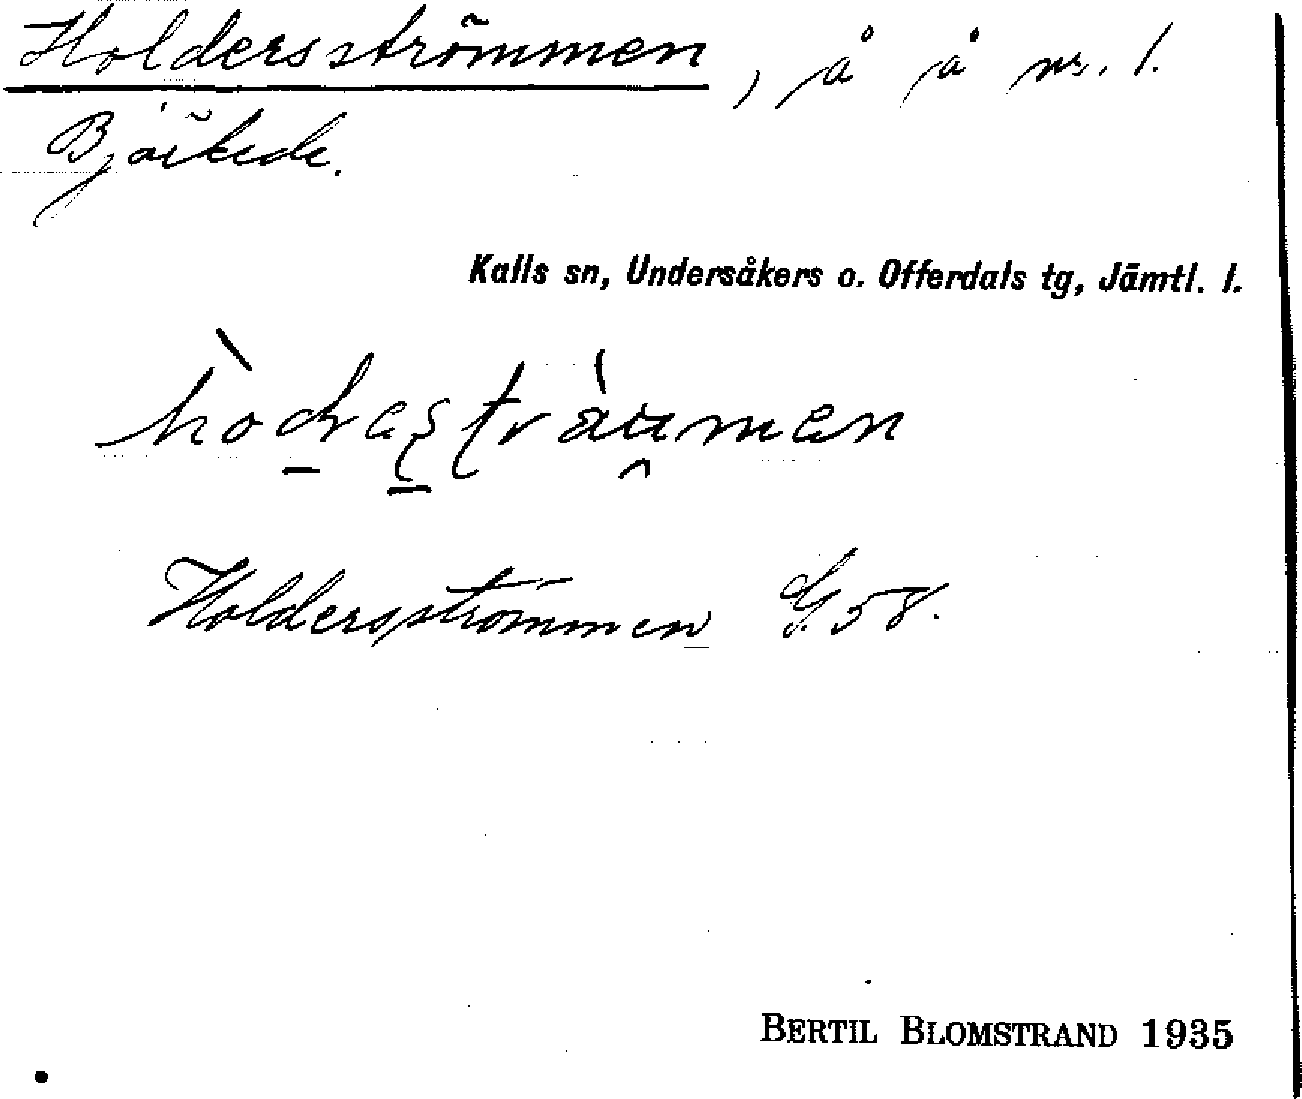 Holdersströmmen, å å nr. 1.
Björkede.
Kalls sn, Undersåkers o. Offerdals tg, Jämtl. l.
Holdersströmmen G. 58.
BERTIL BLOMSTRAND 1935